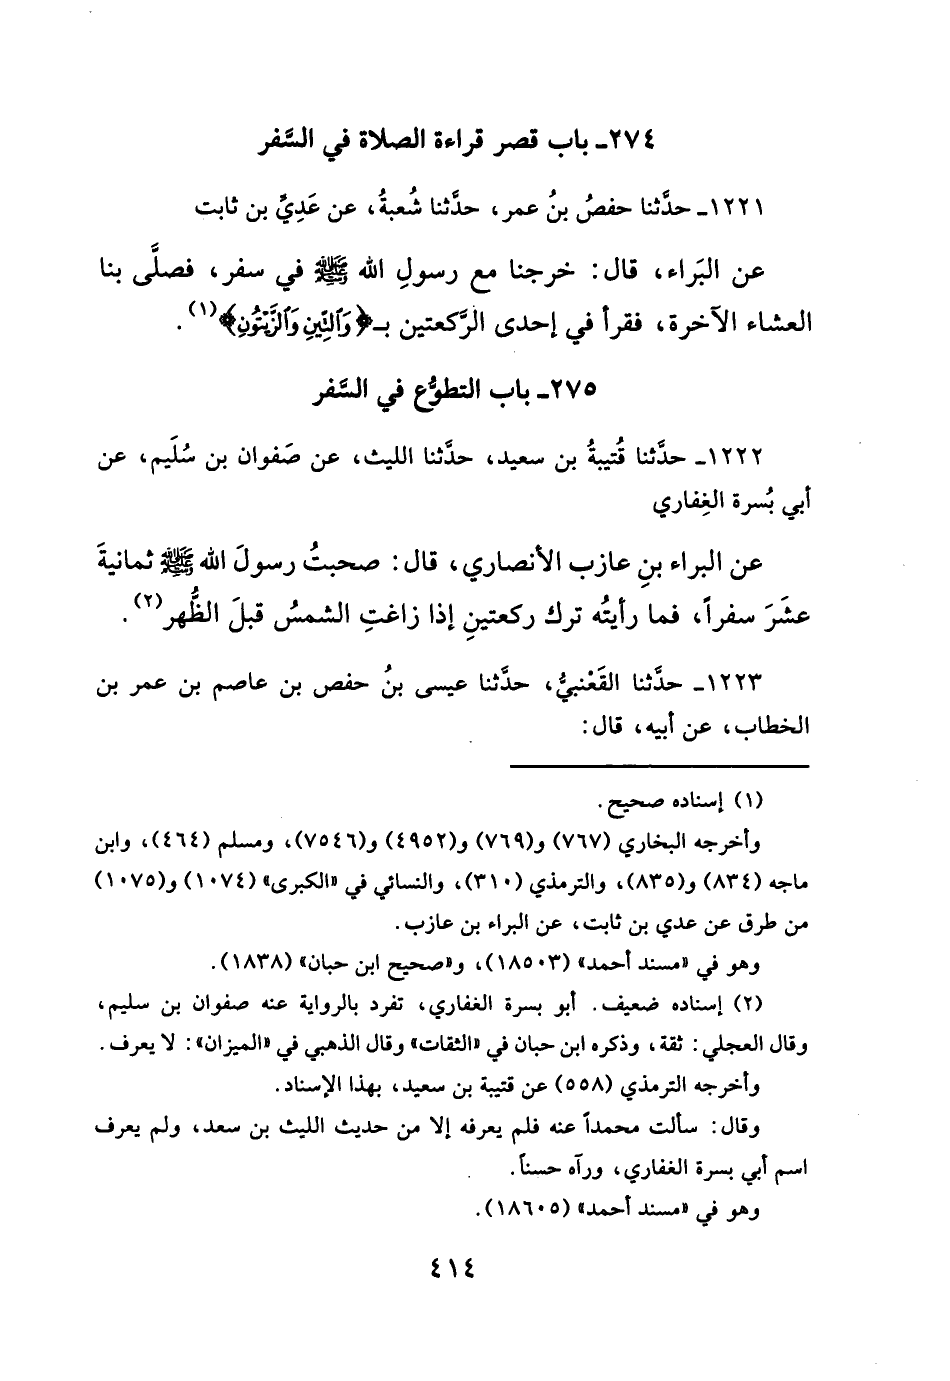 ٢٧٤ـ باب قصر قراءة الصلاة في السَّفر
١٢٢١ـ حدَّثنا حفصُ بنُ عمر، حدَّثنا شُعبةُ، عن عَدِيِّ بن ثابت
عن البَراء، قال: خرجنا مع رسولِ الله ﷺ في سفر، فصلَّى بنا
العشاء الآخرة، فقرأ في إحدى الرَّكعتين بـ﴿وَٱلتِّينِ وَٱلزَّيْتُونِ﴾(١).
٢٧٥ـ باب التطوُّع في السَّفر
١٢٢٢ـ حدَّثنا قُتيبةُ بن سعيد، حدَّثنا الليث، عن صَفوان بن سُلَيم، عن
أبي بُسرة الغِفاري
عن البراء بنِ عازب الأنصاري، قال: صحبتُ رسولَ الله ﷺ ثمانيةَ
عشَرَ سفراً، فما رأيتُه ترك ركعتينِ إذا زاغتِ الشمسُ قبلَ الظُّهر(٢).
١٢٢٣ـ حدَّثنا القَعْنبيُّ، حدَّثنا عيسى بنُ حفص بن عاصم بن عمر بن
الخطاب، عن أبيه، قال:
(١) إسناده صحيح.
وأخرجه البخاري (٧٦٧) و(٧٦٩) و(٤٩٥٢) و(٧٥٤٦)، ومسلم (٤٦٤)، وابن
ماجه (٨٣٤) و(٨٣٥)، والترمذي (٣١٠)، والنسائي في «الكبرى» (١٠٧٤) و(١٠٧٥)
من طرق عن عدي بن ثابت، عن البراء بن عازب.
وهو في «مسند أحمد» (١٨٥٠٣)، و«صحيح ابن حبان» (١٨٣٨).
(٢) إسناده ضعيف. أبو بسرة الغفاري، تفرد بالرواية عنه صفوان بن سليم،
وقال العجلي: ثقة، وذكره ابن حبان في «الثقات» وقال الذهبي في «الميزان»: لا يعرف.
وأخرجه الترمذي (٥٥٨) عن قتيبة بن سعيد، بهذا الإسناد.
وقال: سألت محمداً عنه فلم يعرفه إلا من حديث الليث بن سعد، ولم يعرف
اسم أبي بسرة الغفاري، ورآه حسناً.
وهو في «مسند أحمد» (١٨٦٠٥).
٤١٤